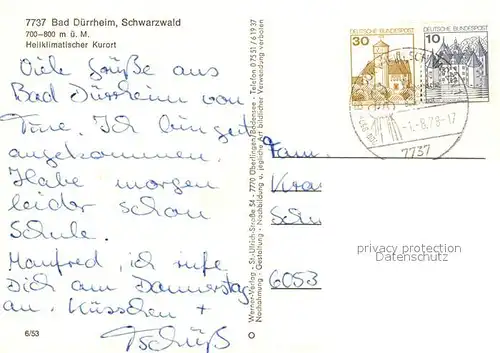 7737 Bad Dürrheim, Schwarzwald
700–800 m ü. M.
Heilklimatischer Kurort
Viele Grüße aus
Bad Dürrheim von
Tine. Ich bin gut
angekommen.
Habe morgen
leider schon
Schule.
Manfred, ich rufe
Dich am Donnerstag
an. Küsschen +
Tschüß
6/53
Werner-Verlag - St.-Ullrich-Straße 54 - 7770 Überlingen/Bodensee - Telefon 07551/61937
Nachahmung - Gestaltung - Nachbildung u. jegliche Art bildlicher Verwendung verboten
30 DEUTSCHE BUNDESPOST
10 DEUTSCHE BUNDESPOST
-1.-8.78-17
7737
Fam.
6053
privacy protection
Datenschutz